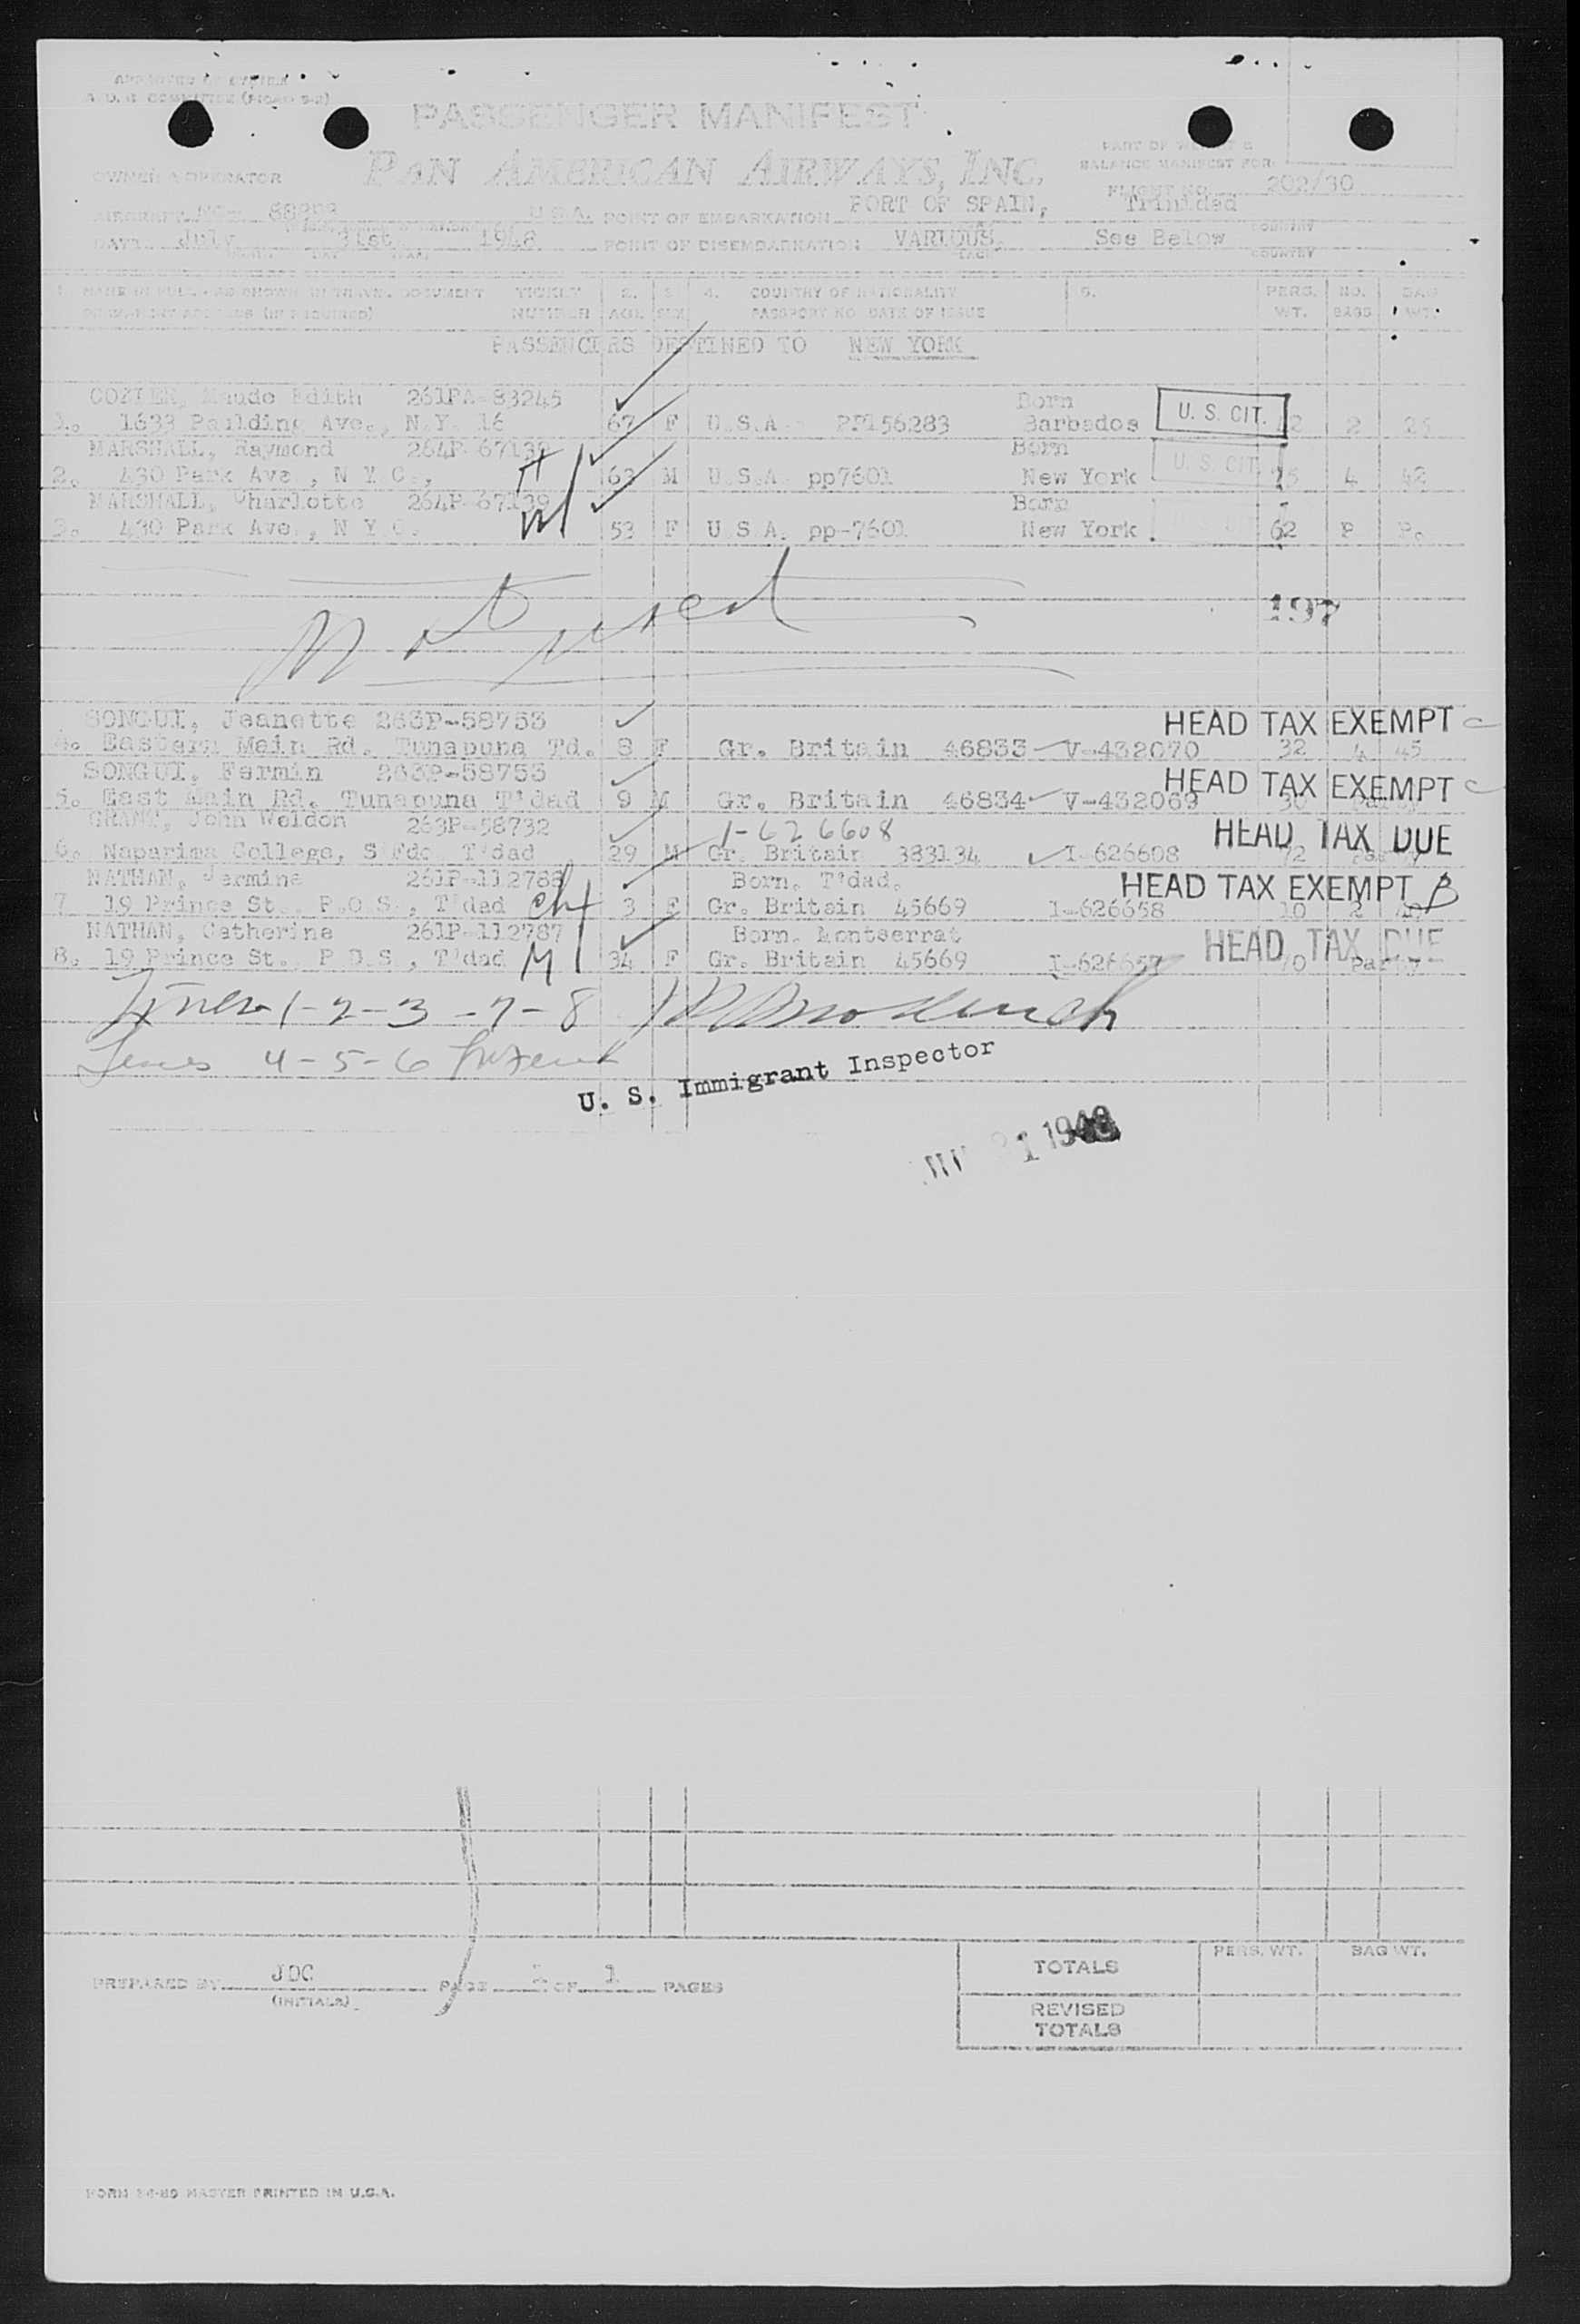 PASSENGER MANIFEST
PAN AMERICAN AIRWAYS, INC.
OWNER & OPERATOR
PART OF WEIGHT &
BALANCE MANIFEST FOR:
FLIGHT NO. 202/30
U.S.A. POINT OF EMBARKATION PORT OF SPAIN, Trinidad
DATE July 31st 1948 POINT OF DISEMBARKATION VARIOUS, See Below
COUNTRY
COUNTRY
1. NAME IN FULL - AS SHOWN IN TRAVEL DOCUMENT TICKET 2. 3. 4. COUNTRY OF NATIONALITY 5. PERS. NO. BAG
PERMANENT ADDRESS (IF REQUIRED) NUMBER AGE SEX PASSPORT NO DATE OF ISSUE WT. BAGS WT.
PASSENGERS DESTINED TO NEW YORK
COZIER, Maude Edith 261PA-83245 Born
1633 Paulding Ave., N.Y. 67 F U.S.A. PP156283 Barbados U. S. CIT. 2
MARSHALL, Raymond 264P-67138 Born
2. 430 Park Ave, N Y C., H 63 M U.S.A. pp7601 New York U. S. CIT. 75 4 42
MARSHALL, Charlotte 264P-67139 Born
3. 430 Park Ave., N Y C. W 53 F U S A. pp-7601 New York 62 P P.
Not used
197
SONGUI, Jeanette 263P-58753 HEAD TAX EXEMPT
4. Eastern Main Rd. Tunapuna Td. 8 F Gr. Britain 46833 V-432070 32 4 45
SONGUI, Fermin 263P-58753 HEAD TAX EXEMPT
5. East Main Rd. Tunapuna T'dad 9 M Gr. Britain 46834 V-432069 30
GRANT, John Weldon 263P-58732 1-626608 HEAD TAX DUE
6. Naparima College, S Fdo T'dad 29 M Gr. Britain 383134 I-626608 72
NATHAN, Jermine 261P-112788 Born. T'dad. HEAD TAX EXEMPT
7 19 Prince St. P.O.S., T'dad Ch 3 F Gr. Britain 45669 I-626658 10 2
NATHAN, Catherine 261P-112787 Born. Montserrat HEAD TAX DUE
8. 19 Prince St. P.O.S., T'dad M 34 F Gr. Britain 45669 I-626657 70 Party
Lines 1-2-3-7-8
Lines 4-5-6
U. S. Immigrant Inspector
1948
PREPARED BY JDC PAGE 1 OF 1 PAGES
(INITIALS)
PERS. WT. BAG WT.
TOTALS
REVISED
TOTALS
MASTER PRINTED IN U.S.A.